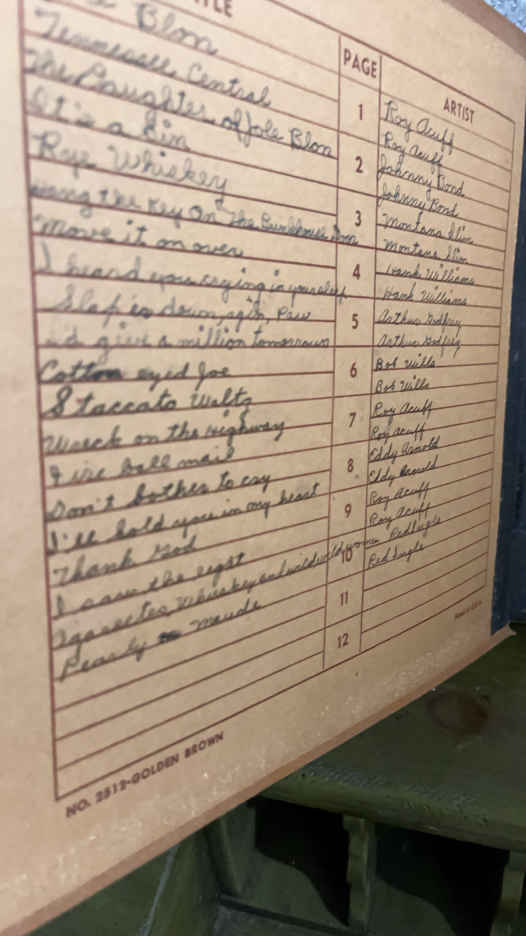 TITLE PAGE ARTIST
Blon 1 Roy Acuff
Tennessee Central Roy Acuff
The Daughter of Jole Blon 2 Johnny Bond
It's a Sin Johnny Bond
Rye Whiskey 3 Montana Slim
Hang the Key On The Bunkhouse Door Montana Slim
Move it on over 4 Hank Williams
I heard you crying in your sleep Hank Williams
Slap er down, agin, Paw 5 Arthur Godfrey
I'd give a million tomorrows Arthur Godfrey
Cotton eyed Joe 6 Bob Wills
Staccato Waltz Bob Wills
Wreck on the highway 7 Roy Acuff
Fire ball mail Roy Acuff
Don't bother to cry 8 Eddy Arnold
I'll hold you in my heart Eddy Arnold
Thank God 9 Roy Acuff
I saw the light Roy Acuff
Cigarettes, Whiskey and wild wild women 10 Red Ingle
Pearly Maude Red Ingle
11
12
NO. 2512-GOLDEN BROWN